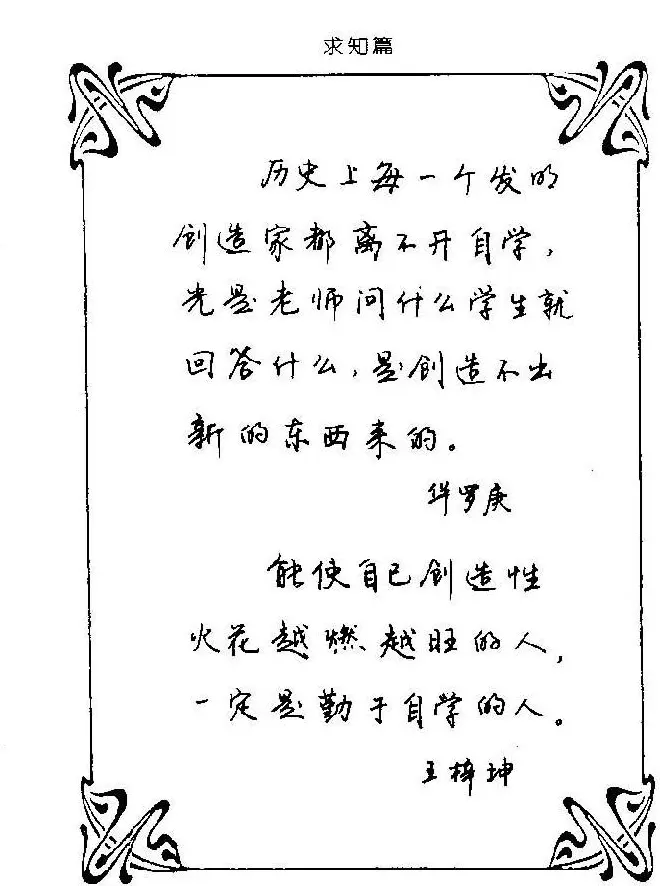 求知篇
历史上每一个发明
创造家都离不开自学，
光是老师问什么学生就
回答什么，是创造不出
新的东西来的。
华罗庚
能使自己创造性
火花越燃越旺的人，
一定是勤于自学的人。
王梓坤